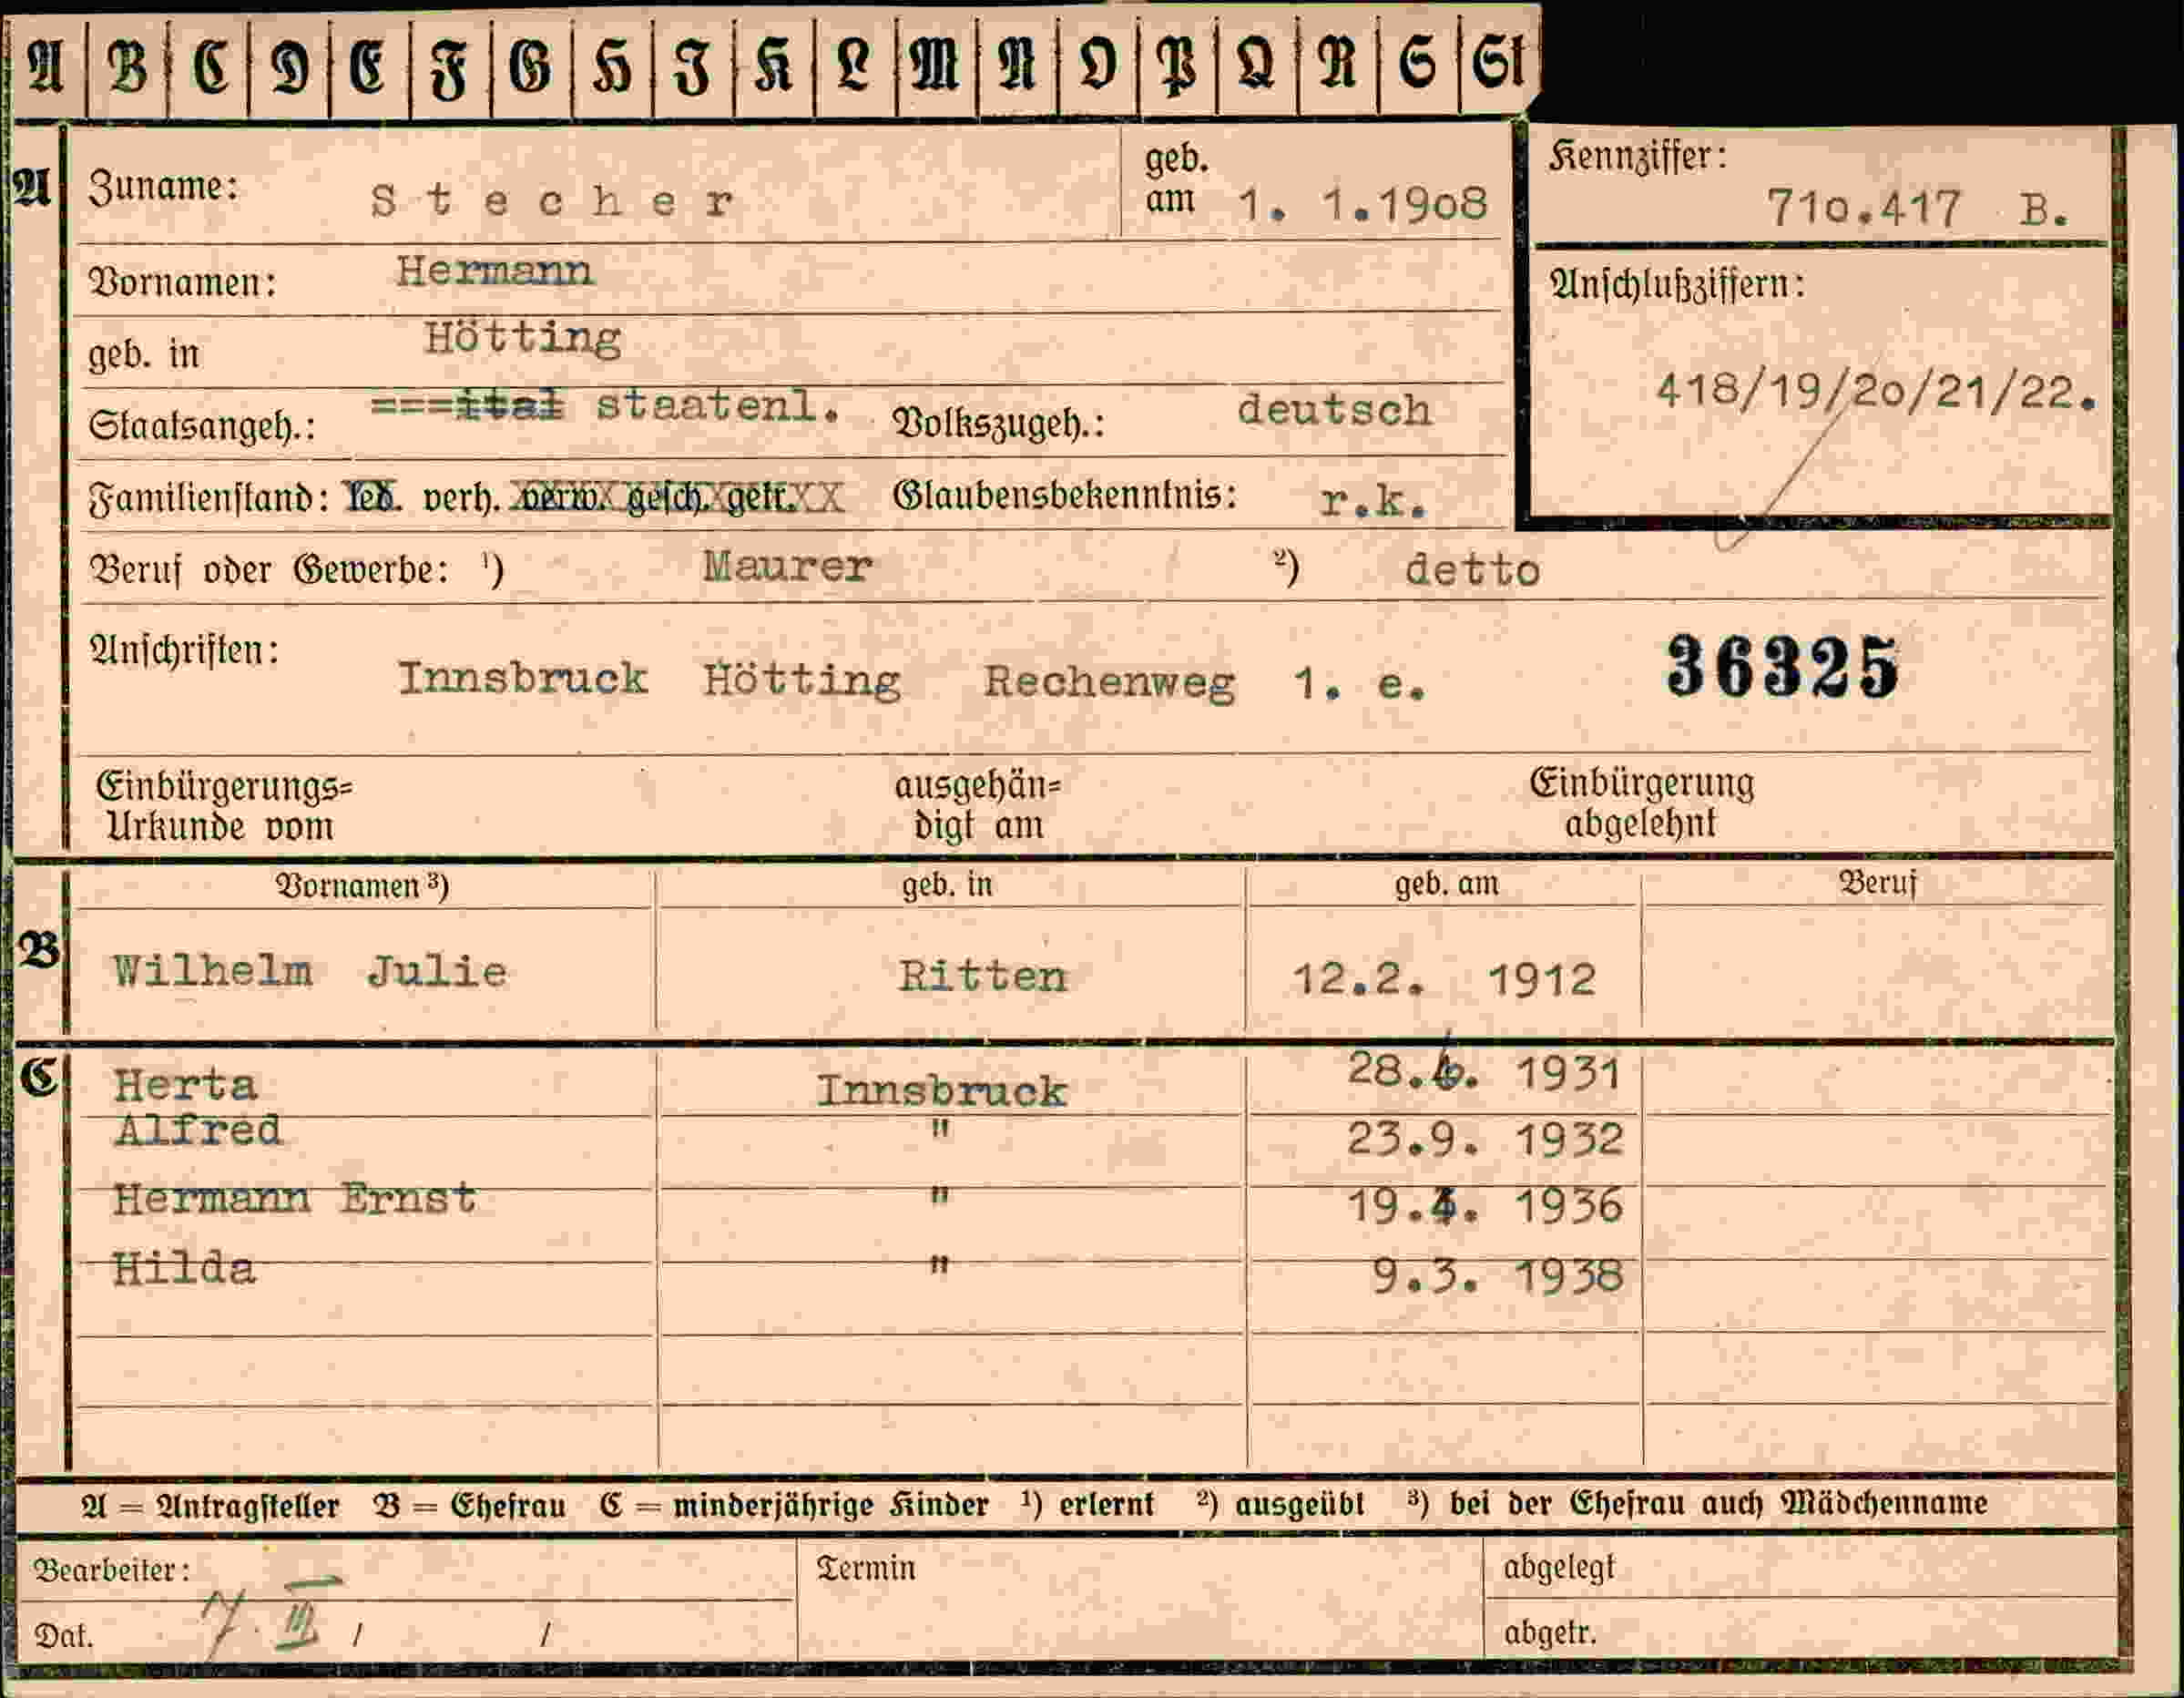 A B C D E F G H I K L M N O P Q R S St
A Zuname: Stecher geb. am 1. 1.1908 Kennziffer: 710.417 B.
Vornamen: Hermann
geb. in Hötting
Anschlußziffern: 418/19/20/21/22.
Staatsangeh.: ===ital staatenl. Volkszugeh.: deutsch
Familienstand: led. verh. verw. gesch. getr.XX Glaubensbekenntnis: r.k.
Beruf oder Gewerbe: ¹) Maurer ²) detto
Anschriften: Innsbruck Hötting Rechenweg 1. e. 36325
Einbürgerungs= Urkunde vom ausgehän= digt am Einbürgerung abgelehnt
Vornamen ³) geb. in geb. am Beruf
B Wilhelm Julie Ritten 12.2. 1912
C Herta Innsbruck 28.6. 1931
Alfred " 23.9. 1932
Hermann Ernst " 19. 1936
Hilda " 9.3. 1938
A = Antragsteller B = Ehefrau C = minderjährige Kinder ¹) erlernt ²) ausgeübt ³) bei der Ehefrau auch Mädchenname
Bearbeiter: Termin abgelegt
Dat. / / abgetr.